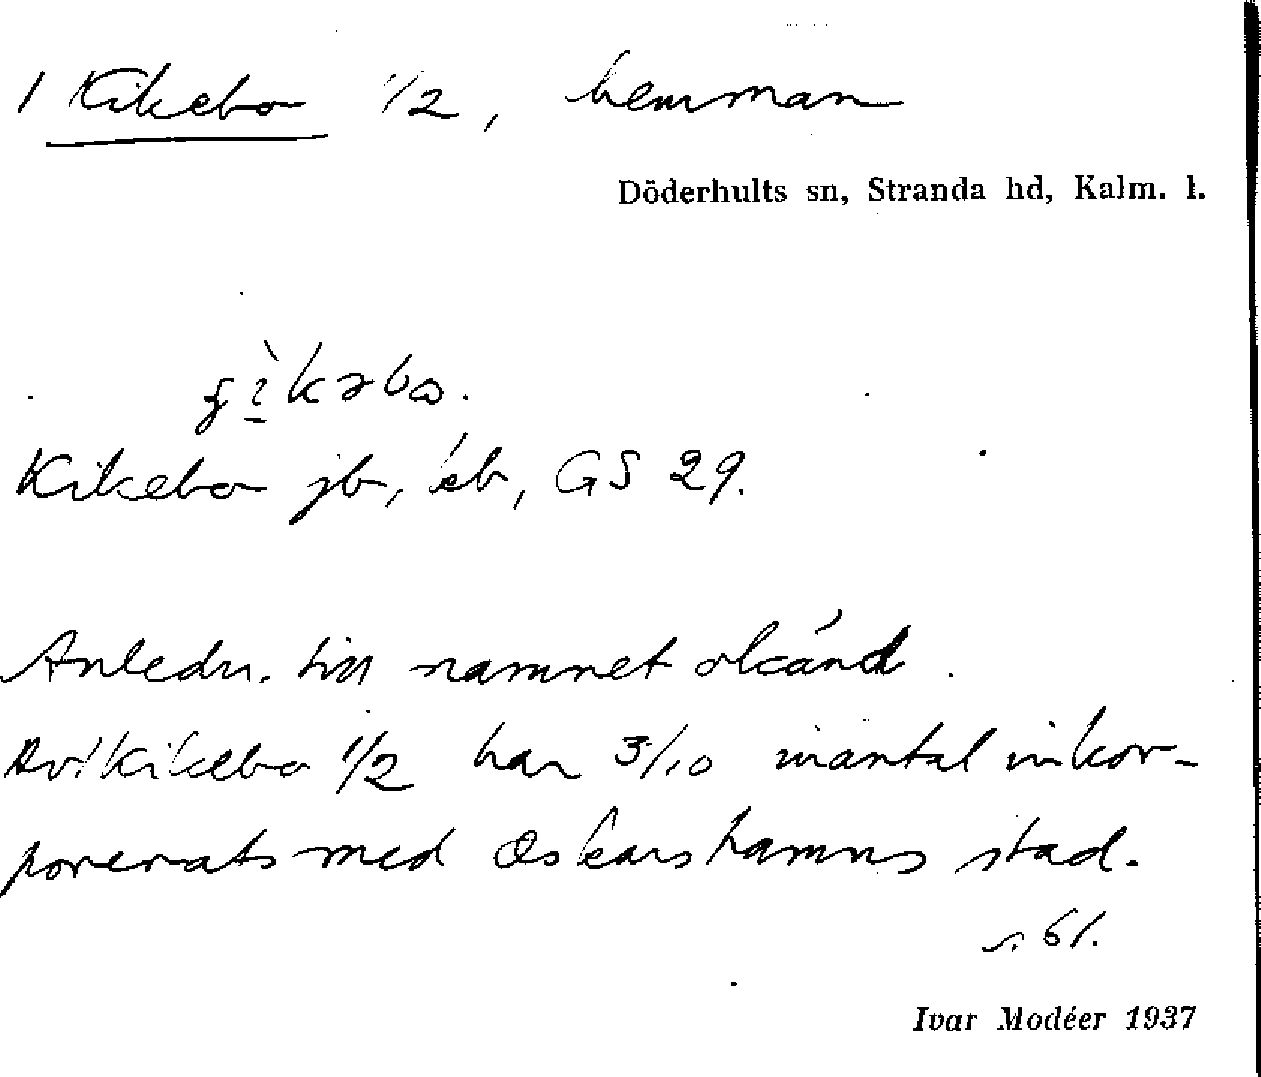 1 Kikebo 1/2, hemman
Döderhults sn, Stranda hd, Kalm. l.
Kikebo jb, eb, GS 29.
Anledn. till namnet okänd.
Av Kikebo 1/2 har 3/10 mantal inkor-
porerats med Oskarshamns stad.
s. 61.
Ivar Modéer 1937